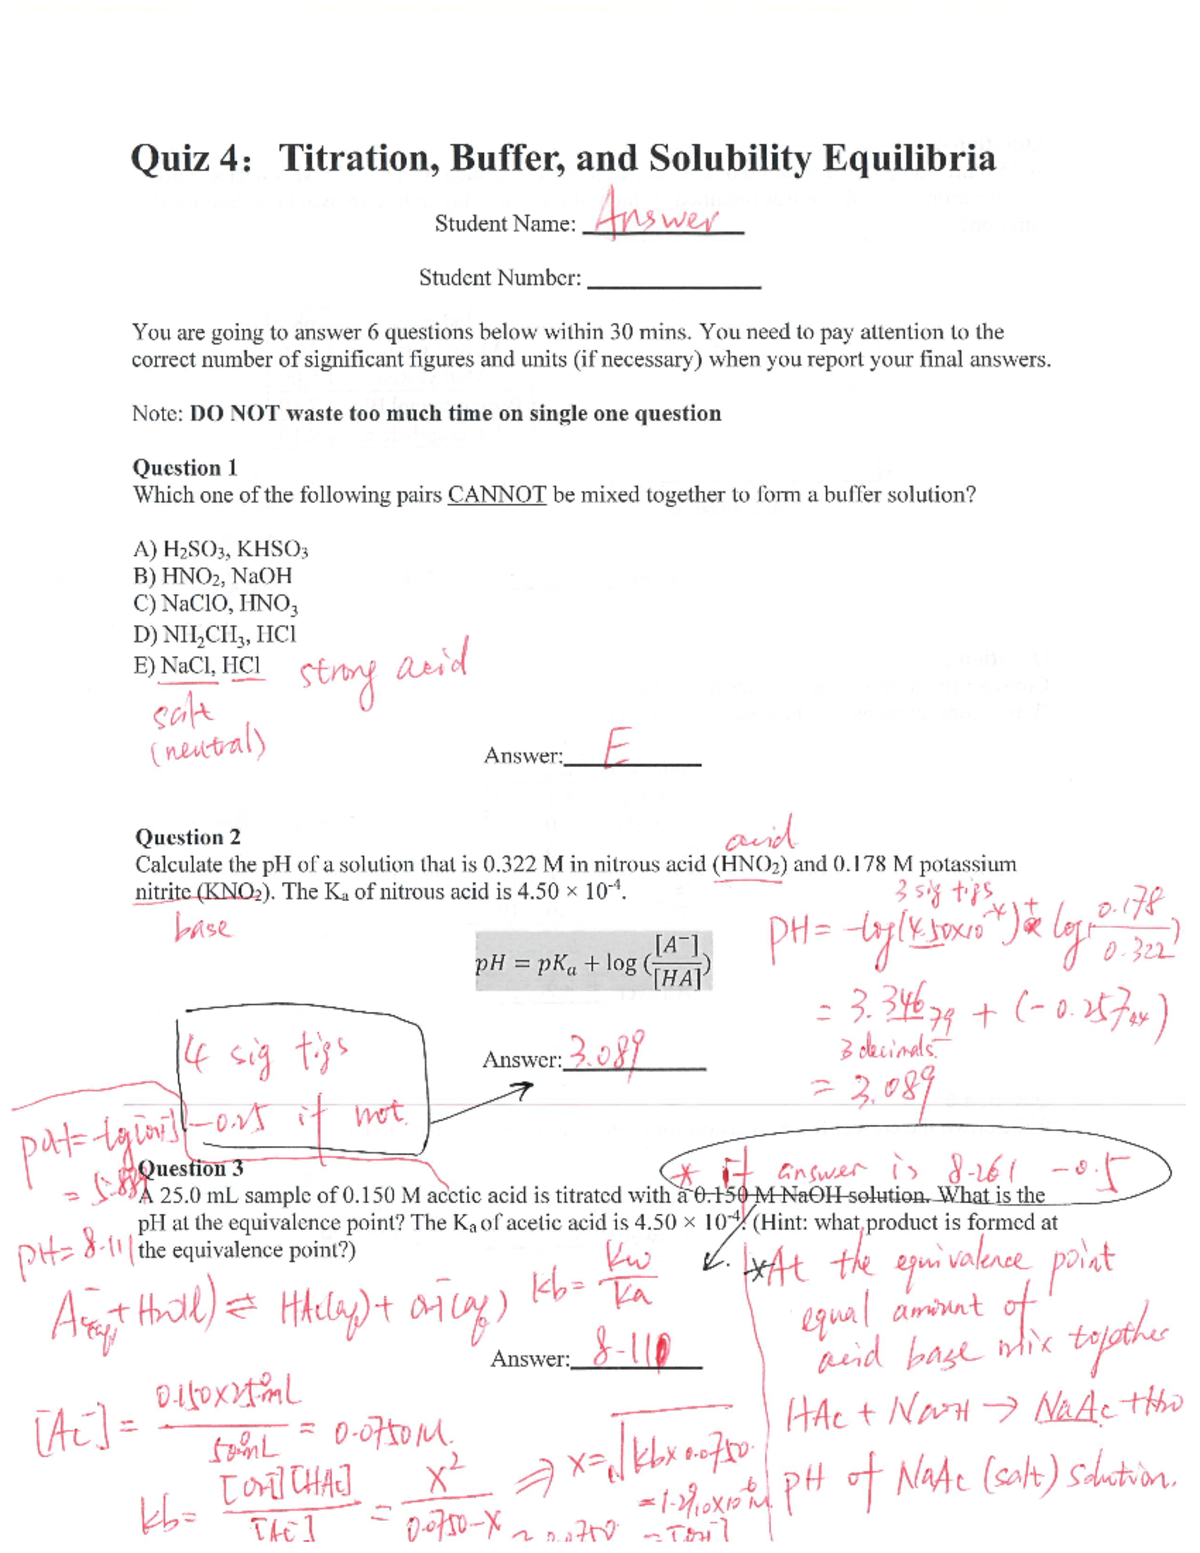 Quiz 4: Titration, Buffer, and Solubility Equilibria
Student Name: Answer
Student Number:
You are going to answer 6 questions below within 30 mins. You need to pay attention to the
correct number of significant figures and units (if necessary) when you report your final answers.
Note: DO NOT waste too much time on single one question
Question 1
Which one of the following pairs CANNOT be mixed together to form a buffer solution?
A) H₂SO₃, KHSO₃
B) HNO₂, NaOH
C) NaClO, HNO₃
D) NH₂CH₃, HCl
E) NaCl, HCl strong acid
salt
(neutral)
Answer: E
Question 2
acid
Calculate the pH of a solution that is 0.322 M in nitrous acid (HNO₂) and 0.178 M potassium
nitrite (KNO₂). The Kₐ of nitrous acid is 4.50 × 10⁻⁴.
base
3 sig figs
pH = -log(4.50x10⁻⁴) + log(0.178/0.322)
pH = pKₐ + log ([A⁻]/[HA])
= 3.34679 + (-0.25744)
3 decimals
= 3.089
4 sig figs
-0.25 if not.
Answer: 3.089
pOH = -lg[OH⁻]
= 5.889
pH = 8.111
Question 3
* if answer is 8.261 -0.5
A 25.0 mL sample of 0.150 M acetic acid is titrated with a 0.150 M NaOH solution. What is the
pH at the equivalence point? The Kₐ of acetic acid is 4.50 × 10⁻⁴. (Hint: what product is formed at
the equivalence point?)
Ac⁻(aq) + H₂O(l) ⇌ HAc(aq) + OH⁻(aq)
Kb = Kw/Ka
Answer: 8.111
*At the equivalence point
equal amount of
acid base mix together
HAc + NaOH → NaAc + H₂O
pH of NaAc (salt) solution.
[Ac⁻] = 0.150x25.0mL/50.0mL = 0.0750M.
Kb = [OH⁻][HAc]/[Ac⁻] = x²/0.0750-x ≈ 0.0750
⇒ x = √Kb x 0.0750
= [OH⁻]